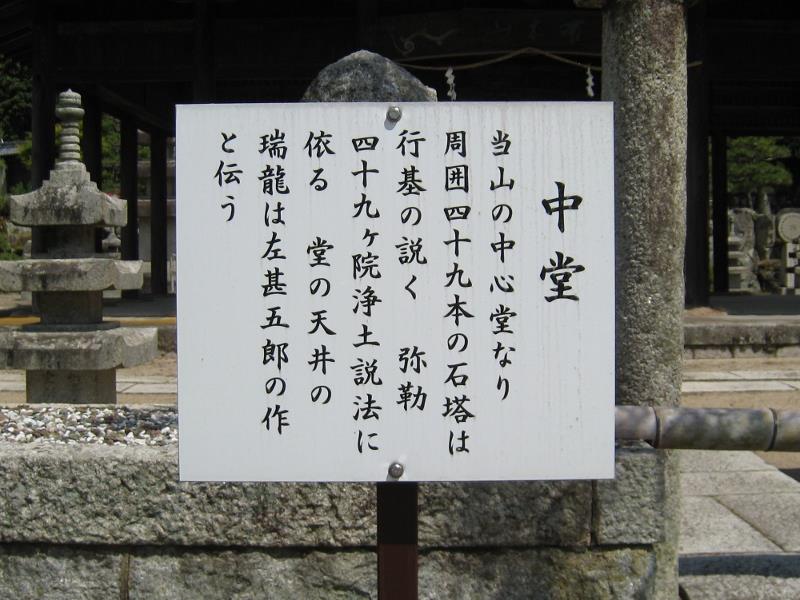 中堂
当山の中心堂なり
周囲四十九本の石塔は
行基の説く　弥勒
四十九ヶ院浄土説法に
依る　堂の天井の
瑞龍は左甚五郎の作
と伝う